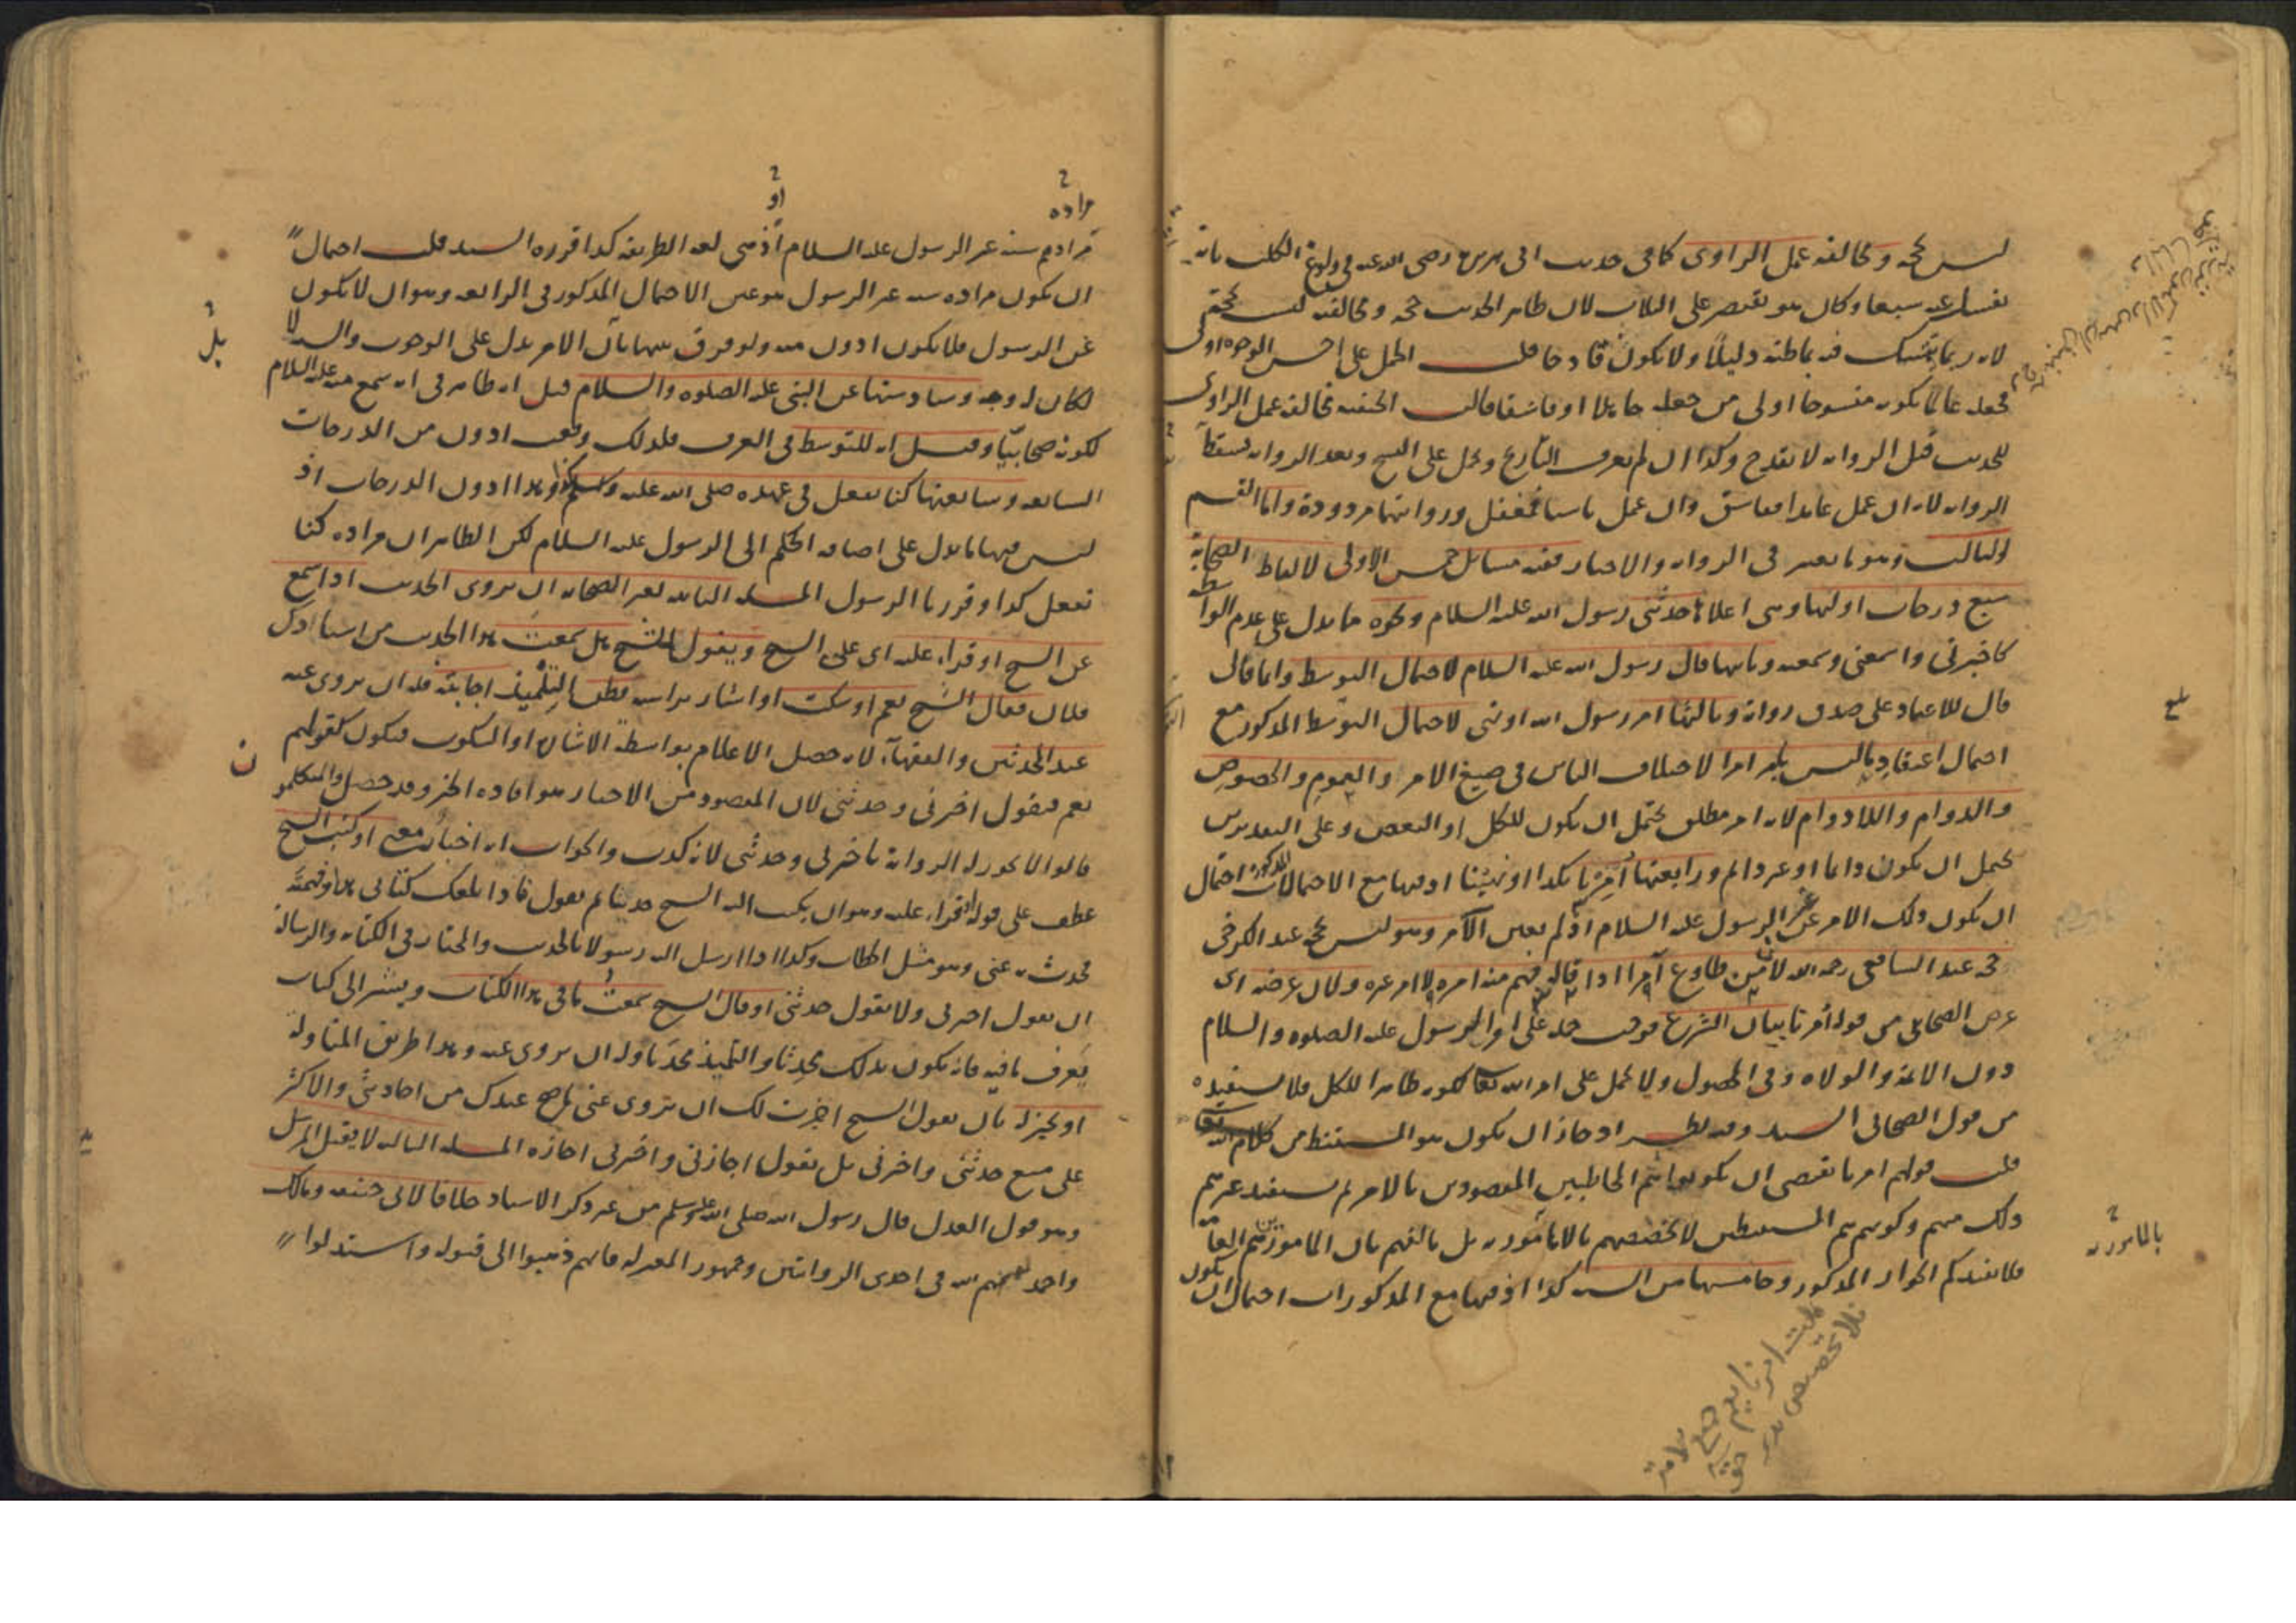 ليس بحجة ومخالفة عمل الراوى كما فى حديث ابى هريرة رضى الله عنه فى ولوغ الكلب بانه
يغسل عنه سبعا وكان هو يقتصر على الثلاث لان ظاهر الحديث حجة ومخالفته ليست بحجة
لانه ربما يتمسك فيه بما ظنه دليلا ولا يكون قادحا قلت الحمل على احسن الوجوه اولى
فجعله عالما بكونه منسوخا اولى من جعله جاهلا او فاسقا قالت الحنفية مخالفة عمل الراوى
للحديث قبل الرواية لا تقدح وكذا ان لم يعرف التاريخ وحمل على النسخ وبعد الرواية تسقط
الرواية لانه ان عمل عامدا ففاسق وان عمل ناسيا فمغفل وروايتهما مردودة واما القسم
الثالث وهو ما يعتبر فى الرواية والاخبار ففيه مسائل خمس الاولى لالفاظ الصحابة
سبع درجات اولها وهى اعلاها حدثنى رسول الله عليه السلام ونحوه مما يدل على عدم الواسطة
كاخبرنى واسمعنى وسمعته وثانيها قال رسول الله عليه السلام لاحتمال التوسط وانما قال
قال للاعتماد على صدق رواته وثالثها امر رسول الله او نهى لاحتمال التوسط المذكور مع
احتمال اعتقاد ما ليس بامر امرا لاختلاف الناس فى صيغ الامر والعموم والخصوص
والدوام واللادوام لانه امر مطلق يحتمل ان يكون للكل او البعض وعلى التقديرين
يحتمل ان يكون دائما او غير دائم ورابعتها امرنا بكذا او نهينا اذ فيها مع الاحتمالات المذكورة احتمال
ان يكون ذلك الامر غير الرسول عليه السلام اذ لم يعين الآمر وهو ليس بحجة عند الكرخى
حجة عند الشافعى رحمه الله لان من طاوع آمرا اذا قاله فهم منه امره لا امر غيره ولان غرضه اى
غرض الصحابى من قوله امرنا بيان الشرع فوجب حمله على اوامر الرسول عليه الصلوة والسلام
دون الائمة والولاة وفى المحصول ولا يحمل على امر الله تعالى لكونه ظاهرا للكل فلا نستفيده
من قول الصحابى السيد وفيه نظر اذ جاز ان يكون هو المستنبط من كلام الله تعالى
قلت قولهم امرنا يقتضى ان يكونوا هم المخاطبين المقصودين بالامر لم يستفيد غيرهم
ذلك منهم وكونهم هم المستنبطين لا يخصصهم بالمامورية بل بالفهم بان المامورين هم العامة
فلا يفيدكم الجواز المذكور وخامستها من السنة كذا اذ فيها مع المذكورات احتمال ان يكون
بلغ
بالمامورية
مراده
او
مرادهم سنة غير الرسول عليه السلام اذ هى لغة الطريقة كذا قرره السيد قلت احتمال
ان يكون مراده سنة غير الرسول هو عين الاحتمال المذكور فى الرابعة وهو ان لا يكون
عن الرسول فلا يكون ادون منه ولو فرق بينهما بان الامر يدل على الوجوب والسنة لا
بل
لكان له وجه وسادستها عن النبى عليه الصلوة والسلام قيل انه ظاهر فى انه سمع منه عليه السلام
لكونه صحابيا وقيل انه للتوسط فى العرف فلذلك وقعت ادون من الدرجات
السابعة وسابعتها كنا نفعل فى عهده صلى الله عليه وسلم كذا وهذا ادون الدرجات اذ
ليس فيها ما يدل على اضافة الحكم الى الرسول عليه السلام لكن الظاهر ان مراده كنا
نفعل كذا وقررنا الرسول المسئلة الثانية لغير الصحابة ان يروى الحديث اذا سمع
عن الشيخ او قرا عليه اى على الشيخ ويقول للشيخ هل سمعت هذا الحديث من استاذك
فلان فقال الشيخ نعم او سكت او اشار براسه فظن التلميذ اجابته فله ان يروى عنه
عند المحدثين والفقهاء لانه حصل الاعلام بواسطة الاشارة او السكوت فيكون كقولهم
ن
نعم فيقول اخبرنى وحدثنى لان المقصود من الاخبار هو افادة الخبر وقد حصل والمتكلمون
قالوا لا يجوز له الرواية باخبرنى وحدثنى لانه كذب والجواب انه اخبار معنى او كتب الشيخ
عطف على قوله او قرا عليه وهو ان يكتب اليه الشيخ حديثا ثم يقول فاذا بلغك كتابى هذا وفهمته
فحدث به عنى وهو مثل الخطاب وكذا اذا ارسل اليه رسولا بالحديث والمختار فى الكتابة والرسالة
ان يقول اخبرنى ولا يقول حدثنى او قال الشيخ سمعت ما فى هذا الكتاب ويشير الى كتاب
يعرف ما فيه فانه يكون بذلك محدثا والتلميذ محدثا وله ان يروى عنه وهذا طريق المناولة
او يجيز له بان يقول الشيخ اجزت لك ان تروى عنى ما صح عندك من احاديثى والاكثر
على منع حدثنى واخبرنى بل يقول اجازنى واخبرنى اجازة المسئلة الثالثة لا يقبل المرسل
وهو قول العدل قال رسول الله صلى الله عليه وسلم من غير ذكر الاسناد خلافا لابى حنيفة ومالك
واحمد رحمهم الله فى احدى الروايتين وجمهور المعتزلة فانهم ذهبوا الى قبوله واستدلوا